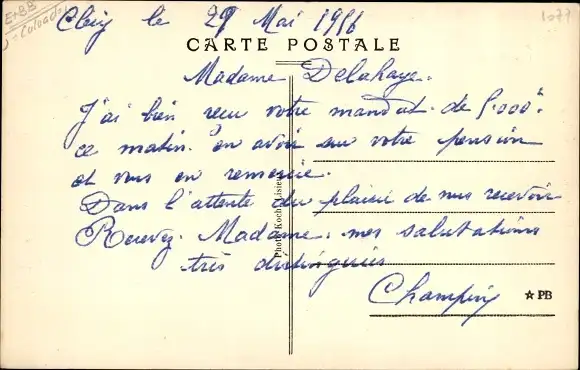 le 29 Mai 1956
1077
Calvados
CARTE POSTALE
Madame Delahaye.
J'ai bien reçu votre mandat de 5.000
ce matin. en avoir sur votre pension
et vous en remercie.
Dans l'attente du plaisir de vous recevoir
Recevez. Madame. mes salutations
très distinguées
Photo Koch Lisieux
☆ PB